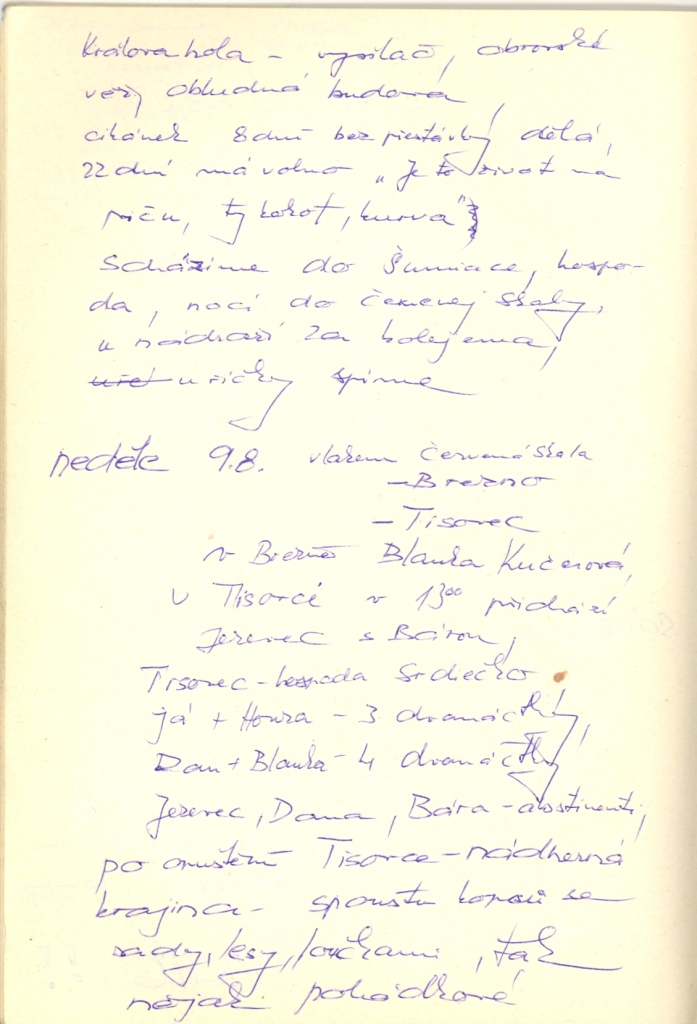 Králova hola – vysílač, obrovské
věže, obludná budova
cikánek 8 dnů bez přestávky dělá,
22 dní má volno „Je to život na
piču, ty kokot, kurva"
Scházíme do Šumiace, hospo-
da, nocí do Červenej Skaly,
u nádraží za kolejema,
u říčky spíme
neděle 9.8. vlakem Červená Skala
– Brezno
– Tisovec
v Brezně Blanka Kučerová,
v Tisovci v 13⁰⁰ přichází
Jezevec s Bárou,
Tisovec – hospoda Srdiečko
já + Honza – 3 dvanáctky,
Dan + Blanka – 4 dvanáctky
Jezevec, Dana, Bára – abstinenti,
po opuštění Tisovce – nádherná
krajina – spoustu kopců se
sady, lesy, loukami, tak
nějak pohádkové